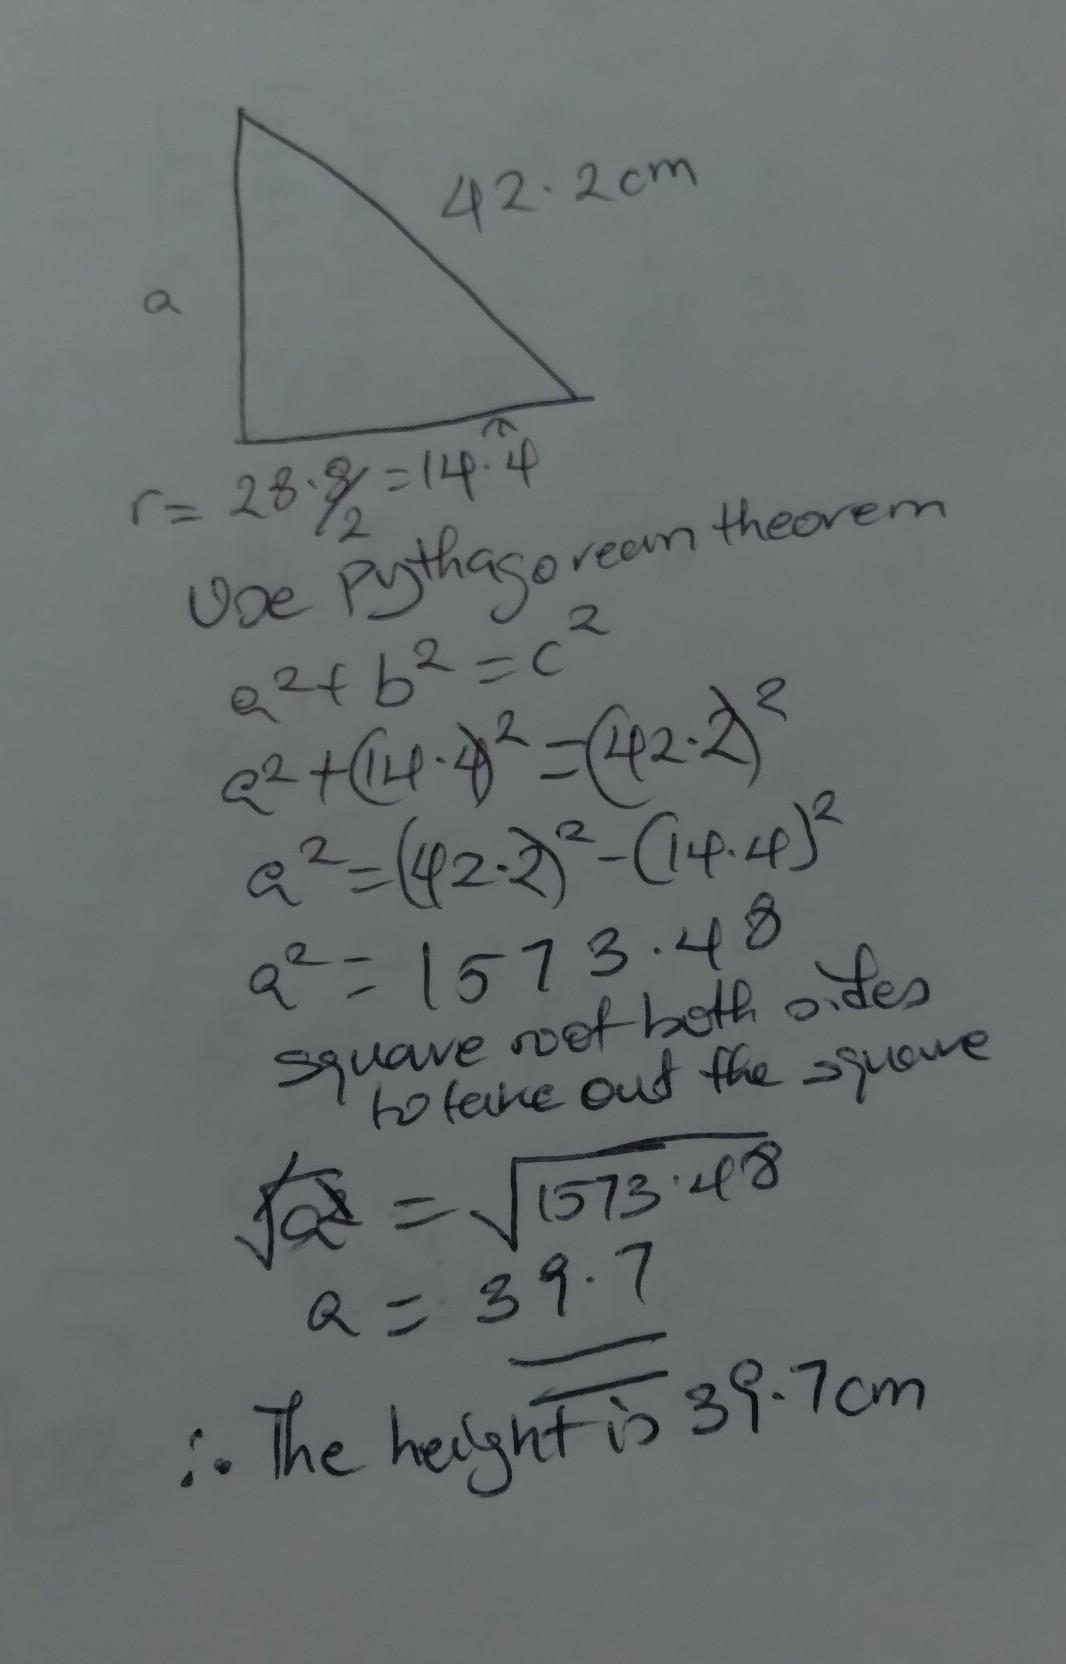 42.2cm
a
r= 28.8/2 =14.4
Use Pythagorean theorem
a²+b²=c²
a²+(14.4)²=(42.2)²
a²=(42.2)²-(14.4)²
a²=1573.48
square root both sides
to take out the square
√a² = √1573.48
a = 39.7
∴ The height is 39.7cm